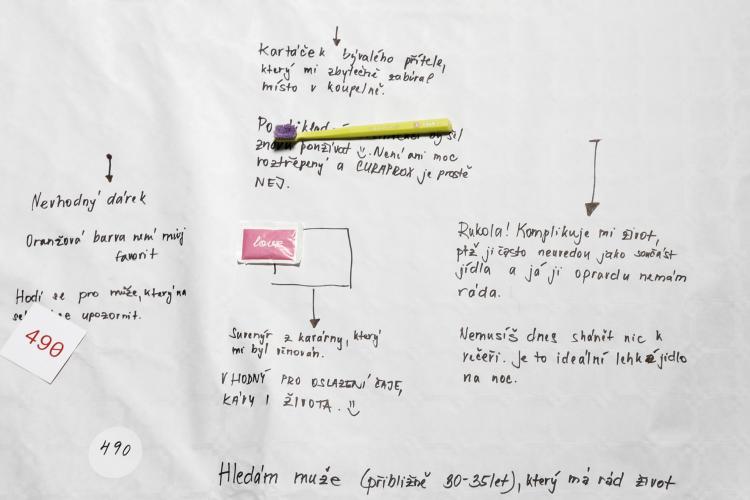 Kartáček bývalého přítele,
který mi zbytečně zabíral
místo v koupelně.
znovu používat. Není ani moc
roztřepený a CURAPROX je prostě
NEJ.
Nevhodný dárek
Oranžová barva není můj
favorit
Hodí se pro muže, který na
upozornit.
490
490
love
Suvenýr z kavárny, který
mi byl věnován.
VHODNÝ PRO OSLAZENÍ ČAJE,
KÁVY I ŽIVOTA.
Rukola! Komplikuje mi život,
ptž ji často neuvedou jako součást
jídla a já ji opravdu nemám
ráda.
Nemusíš dnes shánět nic k
večeři. Je to ideální lehké jídlo
na noc.
Hledám muže (přibližně 30-35let), který má rád život